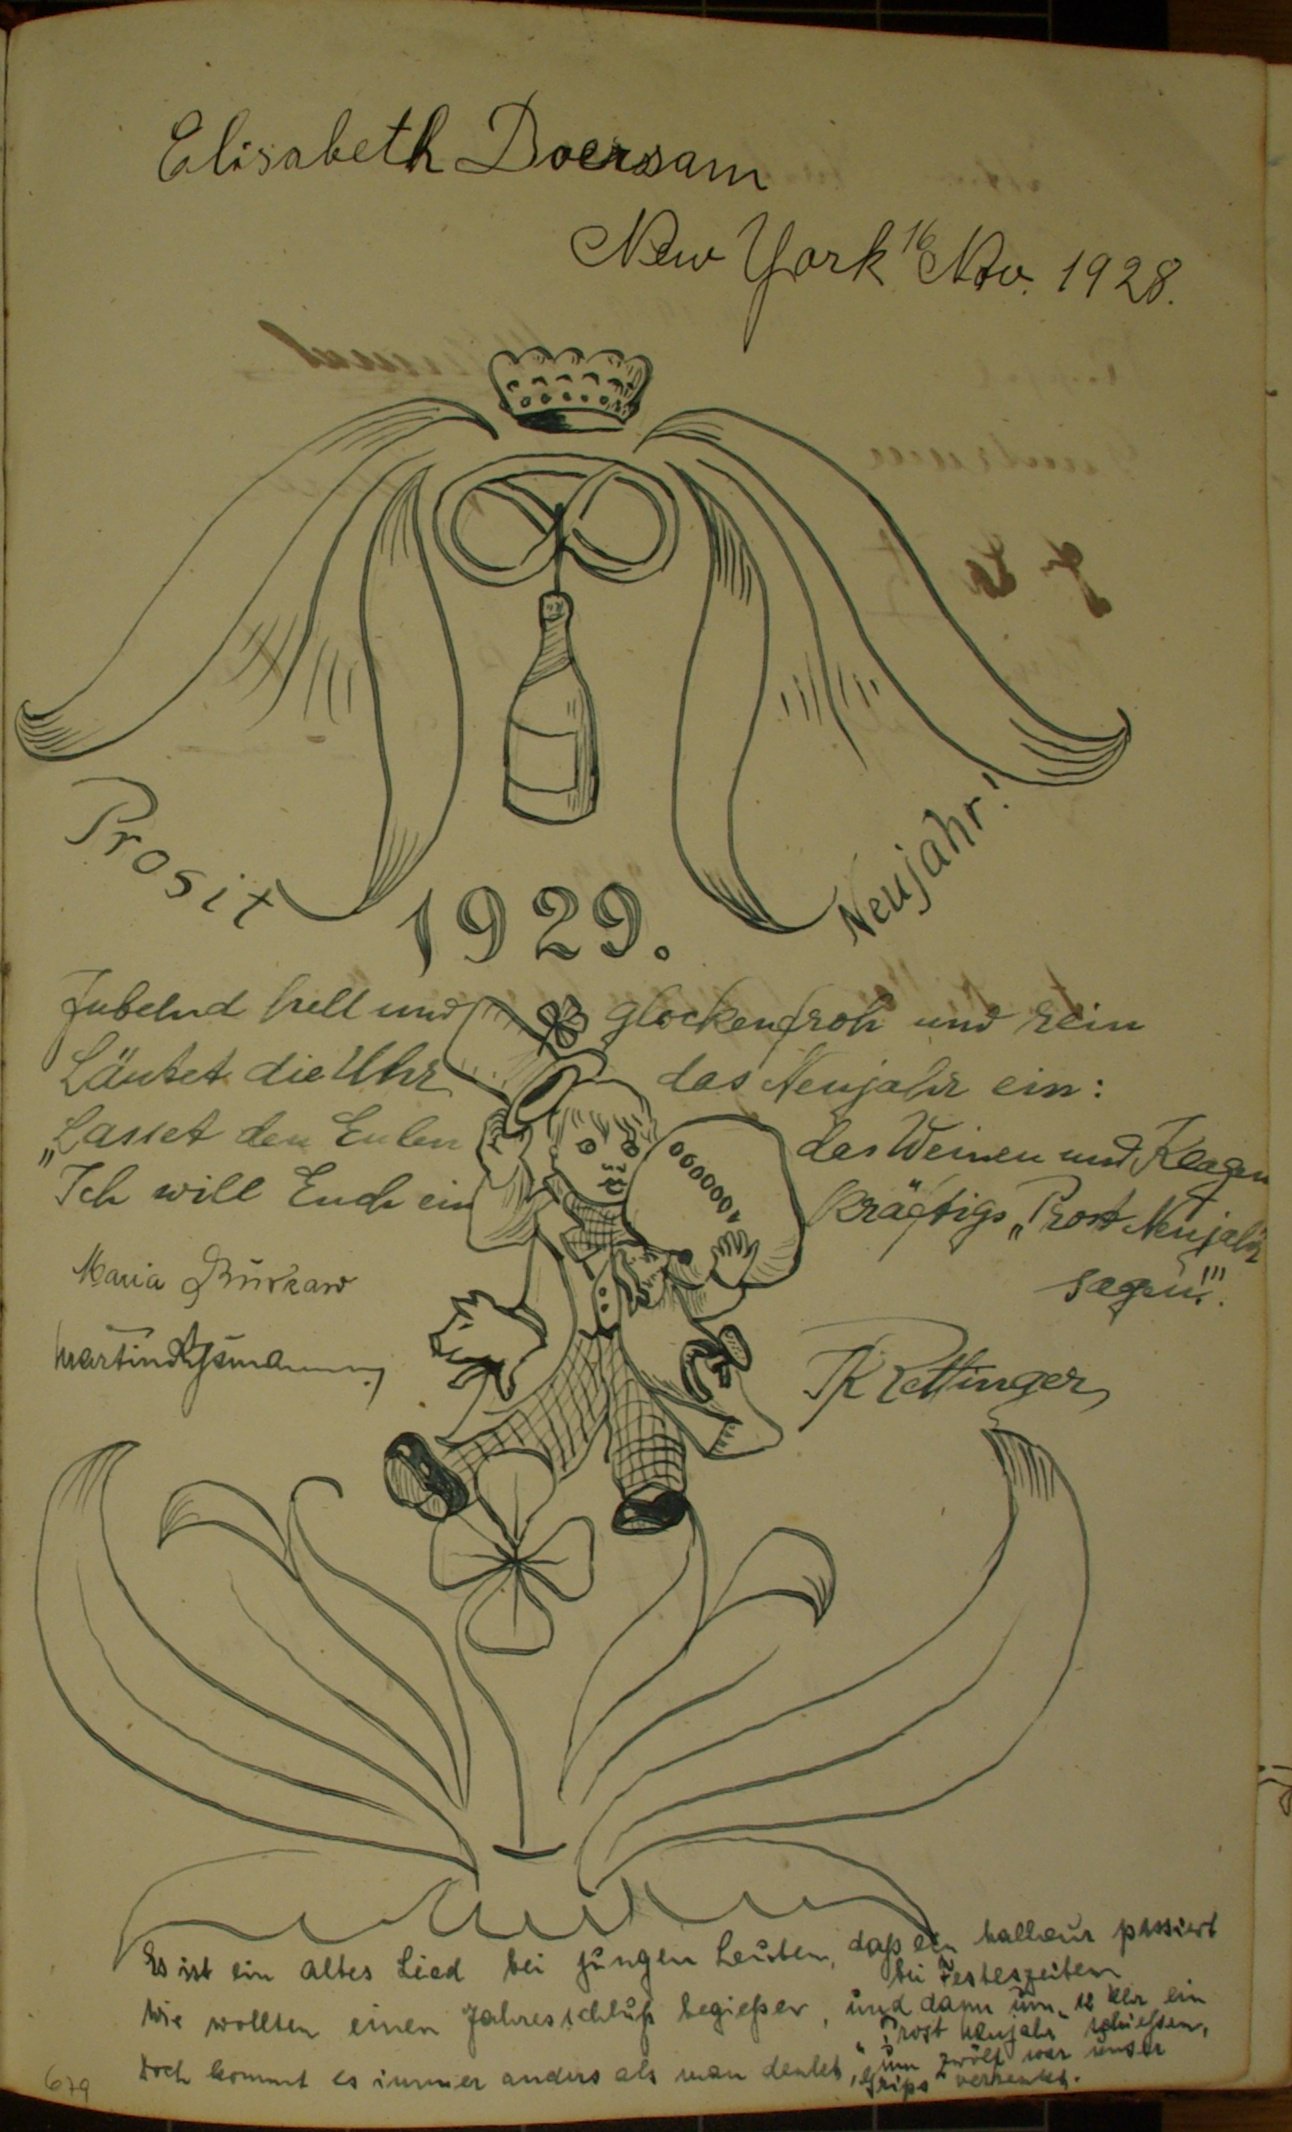 Elisabeth Doersam
New York 16 Nov. 1928.
Prosit Neujahr!
1929.
Jubelnd hell und glockenfroh und rein
Läutet die Uhr das Neujahr ein:
„Lasset den Eulen das Weinen und Klagen
Ich will Euch ein kräftigs „Prost Neujahr
sagen"!!
1000000
Maria
Martin
Rettinger
Es ist ein altes Lied bei jungen Leuten, daß ein Malheur passiert
bei Festeszeiten
Wir wollten einen Jahresschluß begießen, und dann um 12 Uhr ein
"Prost Neujahr" schiessen,
Doch kommt es immer anders als man denket, um zwölf war unser
Grips verrenket.
679